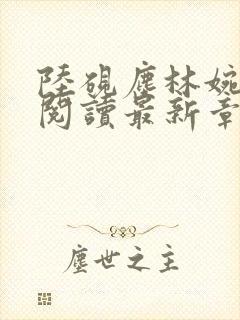 陸硯塵林婉
閱讀最新章
塵世之主